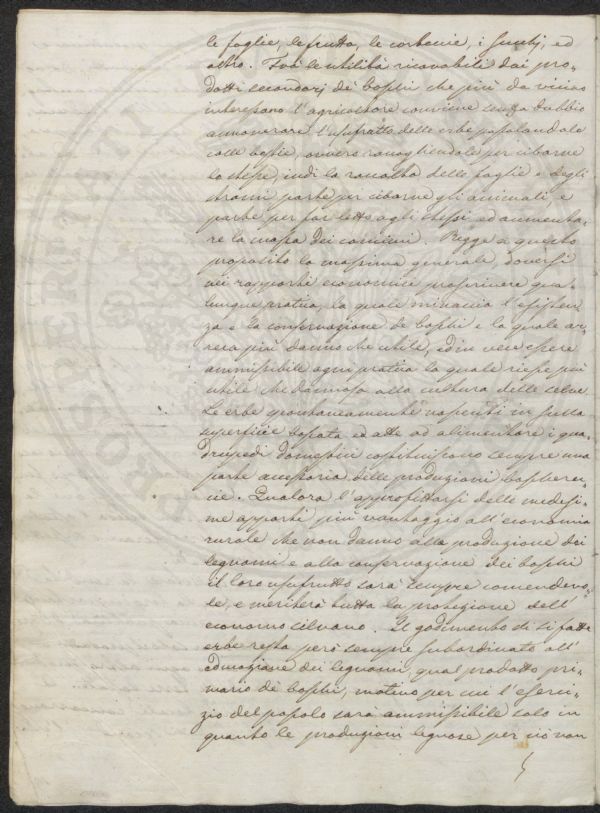 le foglie, le frutta, le corteccie, i funghi, ed
altro. Fra le utilità ricavabili dai pro-
dotti secondarj de boschi che più da vicino
interessano l'agricoltore conviene senza dubbio
annoverare l'usufrutto delle erbe pascolandole
colle bestie, ovvero raccogliendole per cibarne
le stesse, indi la raccolta delle foglie e degli
strami parte per cibarne gli animali, e
parte per far letto agli stessi ed aumenta-
re la massa dei concimi. Regge a questo
proposito la massima generale, doversi
nei rapporti economici proscrivere qua-
lunque pratica, la quale minaccia l'esisten-
za e la conservazione de boschi e la quale ar-
reca più danno che utile, ed in vece essere
ammissibile ogni pratica la quale riesce più
utile che dannosa alla cultura delle selve.
Le erbe spontaneamente nascenti in sulla
superficie boscata ed atte ad alimentare i qua-
drupedi domestici costituiscono sempre una
parte accessoria delle produzioni boscherec-
cie. Qualora l'approfittarsi delle medesi-
me apporti più vantaggio all'economia
rurale che non danno alla produzione dei
legnami e alla conservazione dei boschi
il loro usufrutto sarà sempre commendevo-
le, e meriterà tutta la protezione dell'
economo silvano. Il godimento di si fatte
erbe resta però sempre subordinato all'
educazione dei legnami, qual prodotto pri-
mario de boschi, motivo per cui l'eserci-
zio del pascolo sarà ammissibile solo in
quanto le produzioni legnose per ciò non
PROSPERITATI